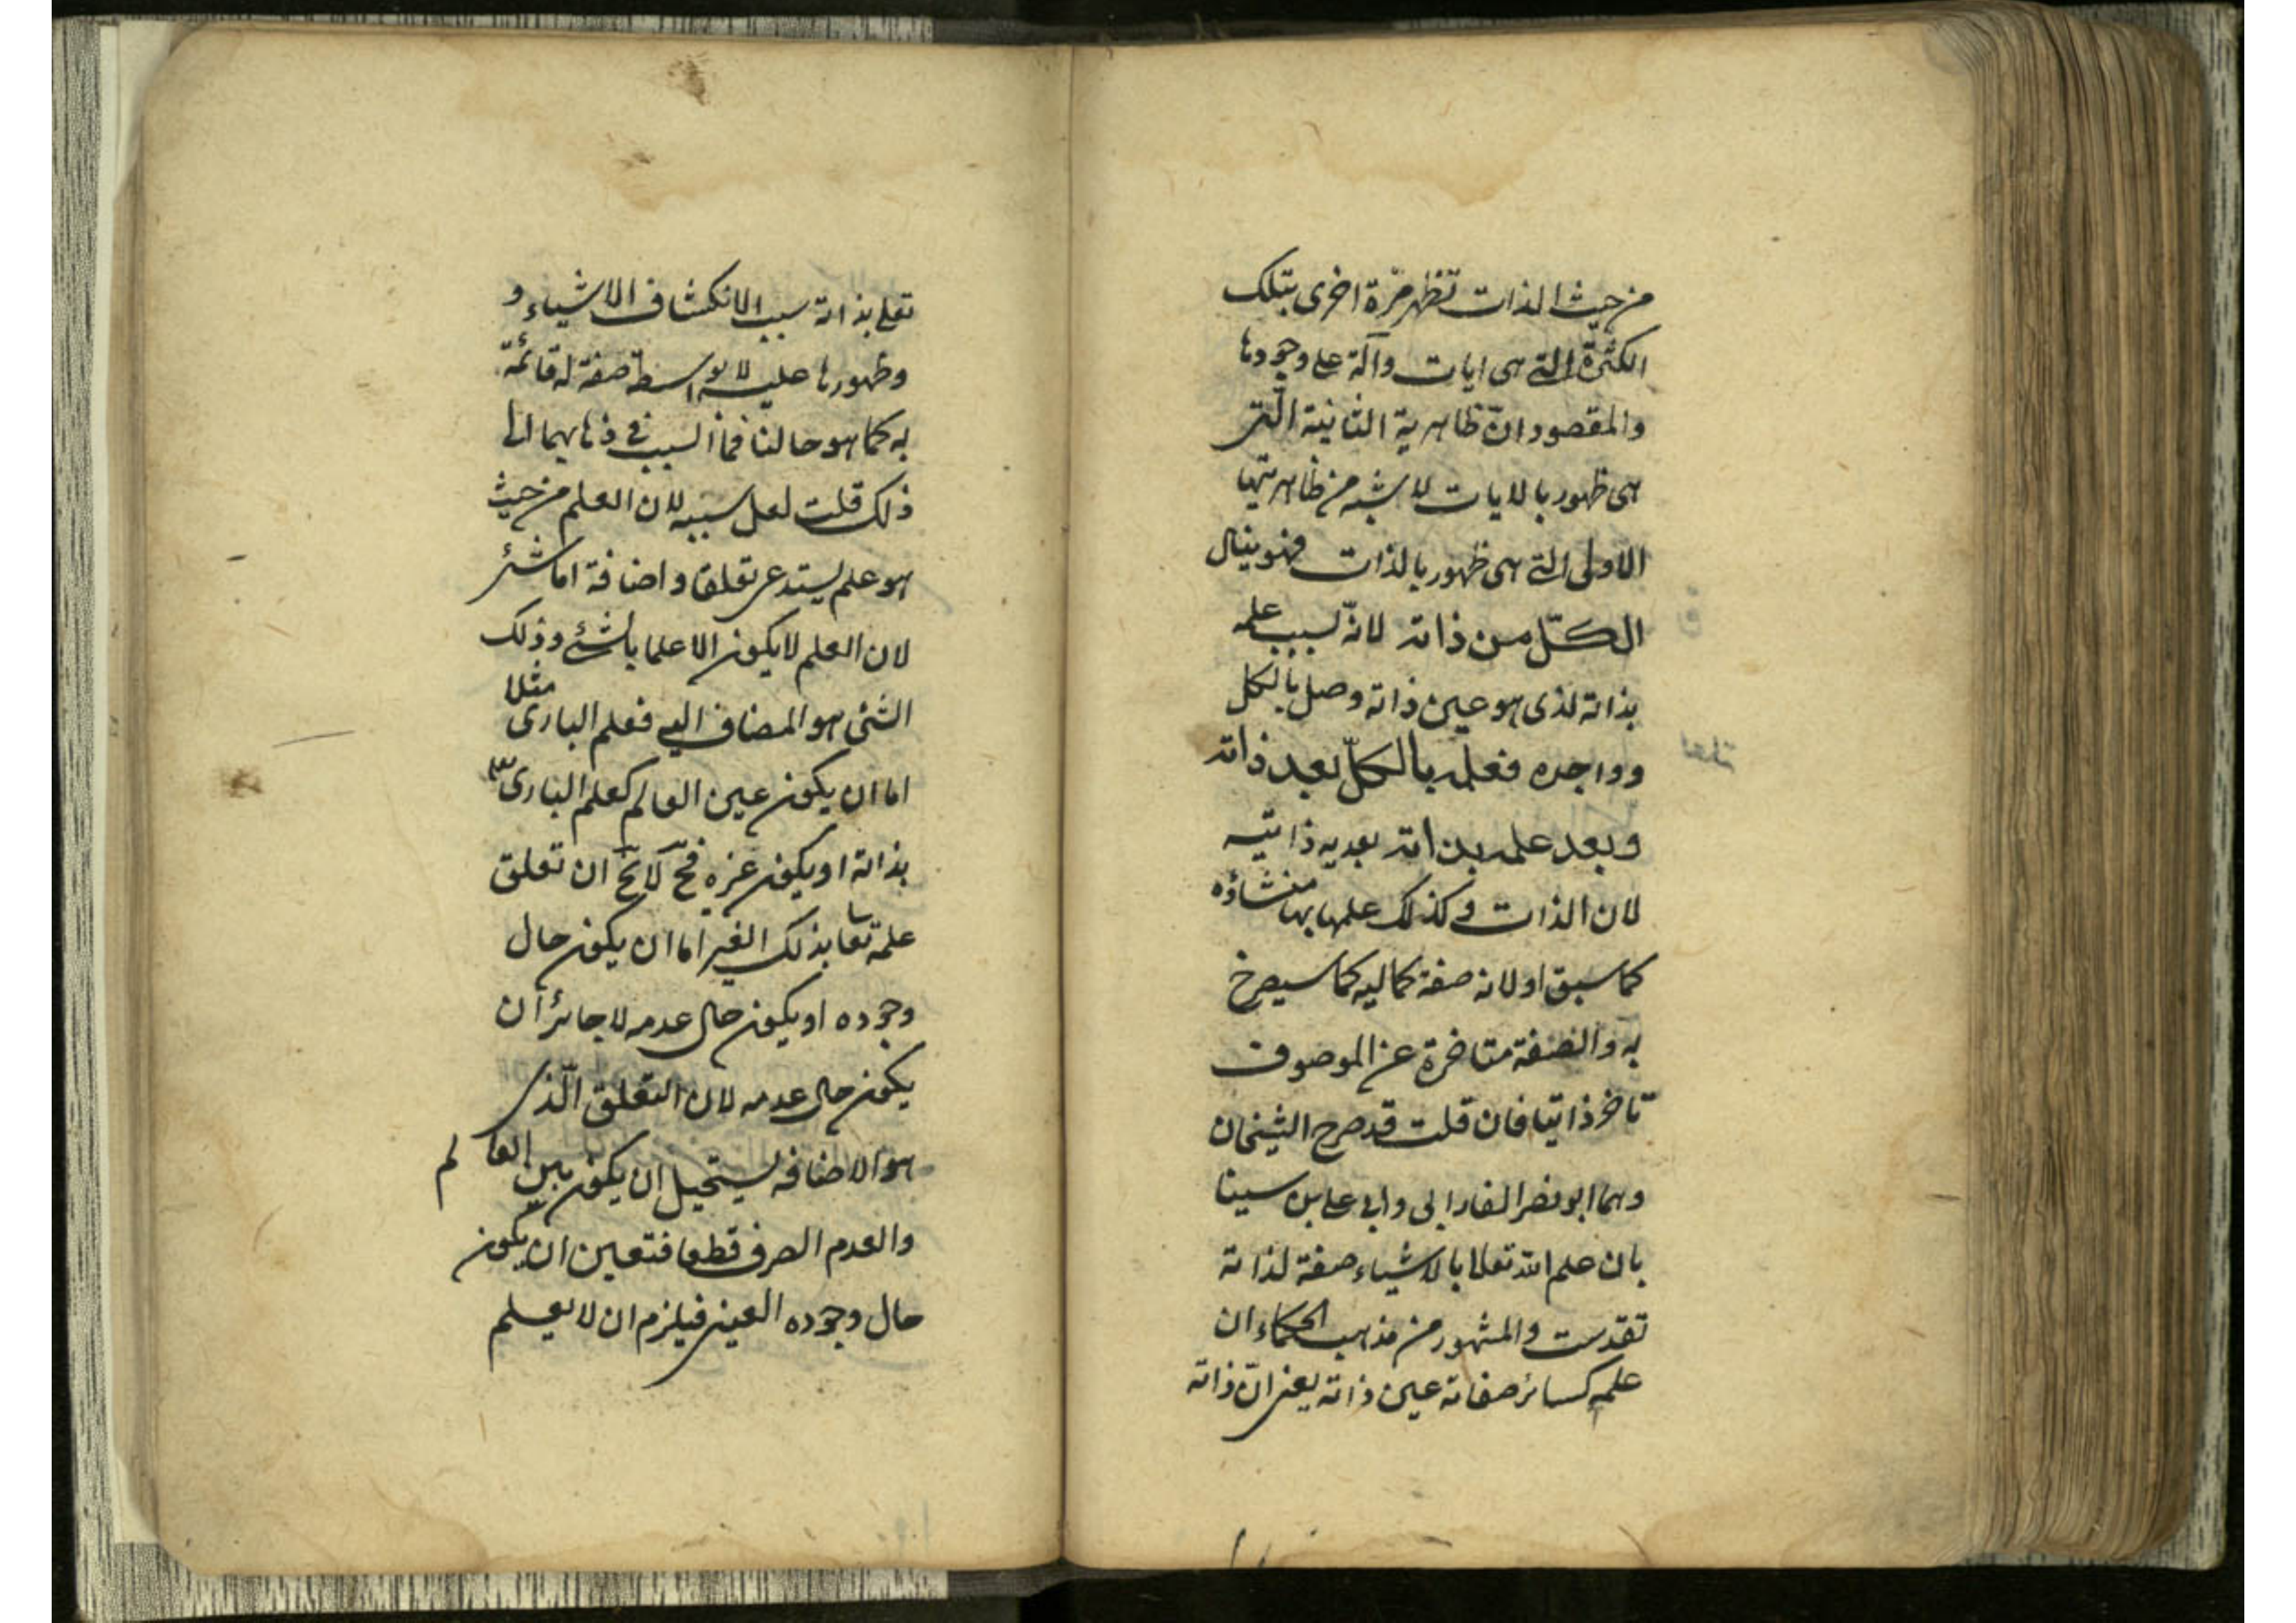 من حيث الذات تظهر مرة اخرى بتلك
الكثرة التى هى ايات وآلة على وجودها
والمقصود انّ ظاهرية الثانية الّتى
هى ظهور بالايات لا شبه من ظاهريتها
الاولى التى هى ظهور بالذات فهو ينال
الكلّ من ذاته لانّ لسبب علمه
بذاته لذى هو عين ذاته وصل بالكل
وواجده فعلمه بالكلّ بعد ذاته
وبعد علمه بذاته بعديه ذاتيه
لان الذات وكذلك علمها بها منشاؤه
كما سبق اولانه صفة كماليه كما سيصرح
به والصفة متاخرة عن الموصوف
تاخر ذاتيا فان قلت قد صرح الشيخان
وهما ابو نصر الفارابى وابى على بن سينا
بان علم الله تعالا بالاشياء صفة لذاته
تقدست والمشهور من مذهب الحكماء ان
علمه كسائر صفاته عين ذاته يعنى انّ ذاته
تعلى بذاته سبب الانكشاف الاشياء و
وظهورها عليه لا بواسطة صفة له قائمة
به كما هو حالنا فما السبب فى ذهابهما الى
ذلك قلت لعل سببه لان العلم من حيث
هو علم يستدعى تعلقا واضافة اما شئ
لان العلم لا يكون الا علما بالشئ وذلك
الشئ هو المضاف اليه فعلم البارى مثلا
اما ان يكون عين العالم كعلم البارى تع
بذاته او يكون غيره فح لا يخ ان تعلق
علمه تعا بذلك الغير اما ان يكون حال
وجوده او يكون حال عدمه لا جائز ان
يكون حال عدمه لان التعلق الّذى
هو الاضافه يستحيل ان يكون بين العالم
والعدم الصرف قطعا فتعين ان يكون
حال وجوده العينى فيلزم ان لا يعلم